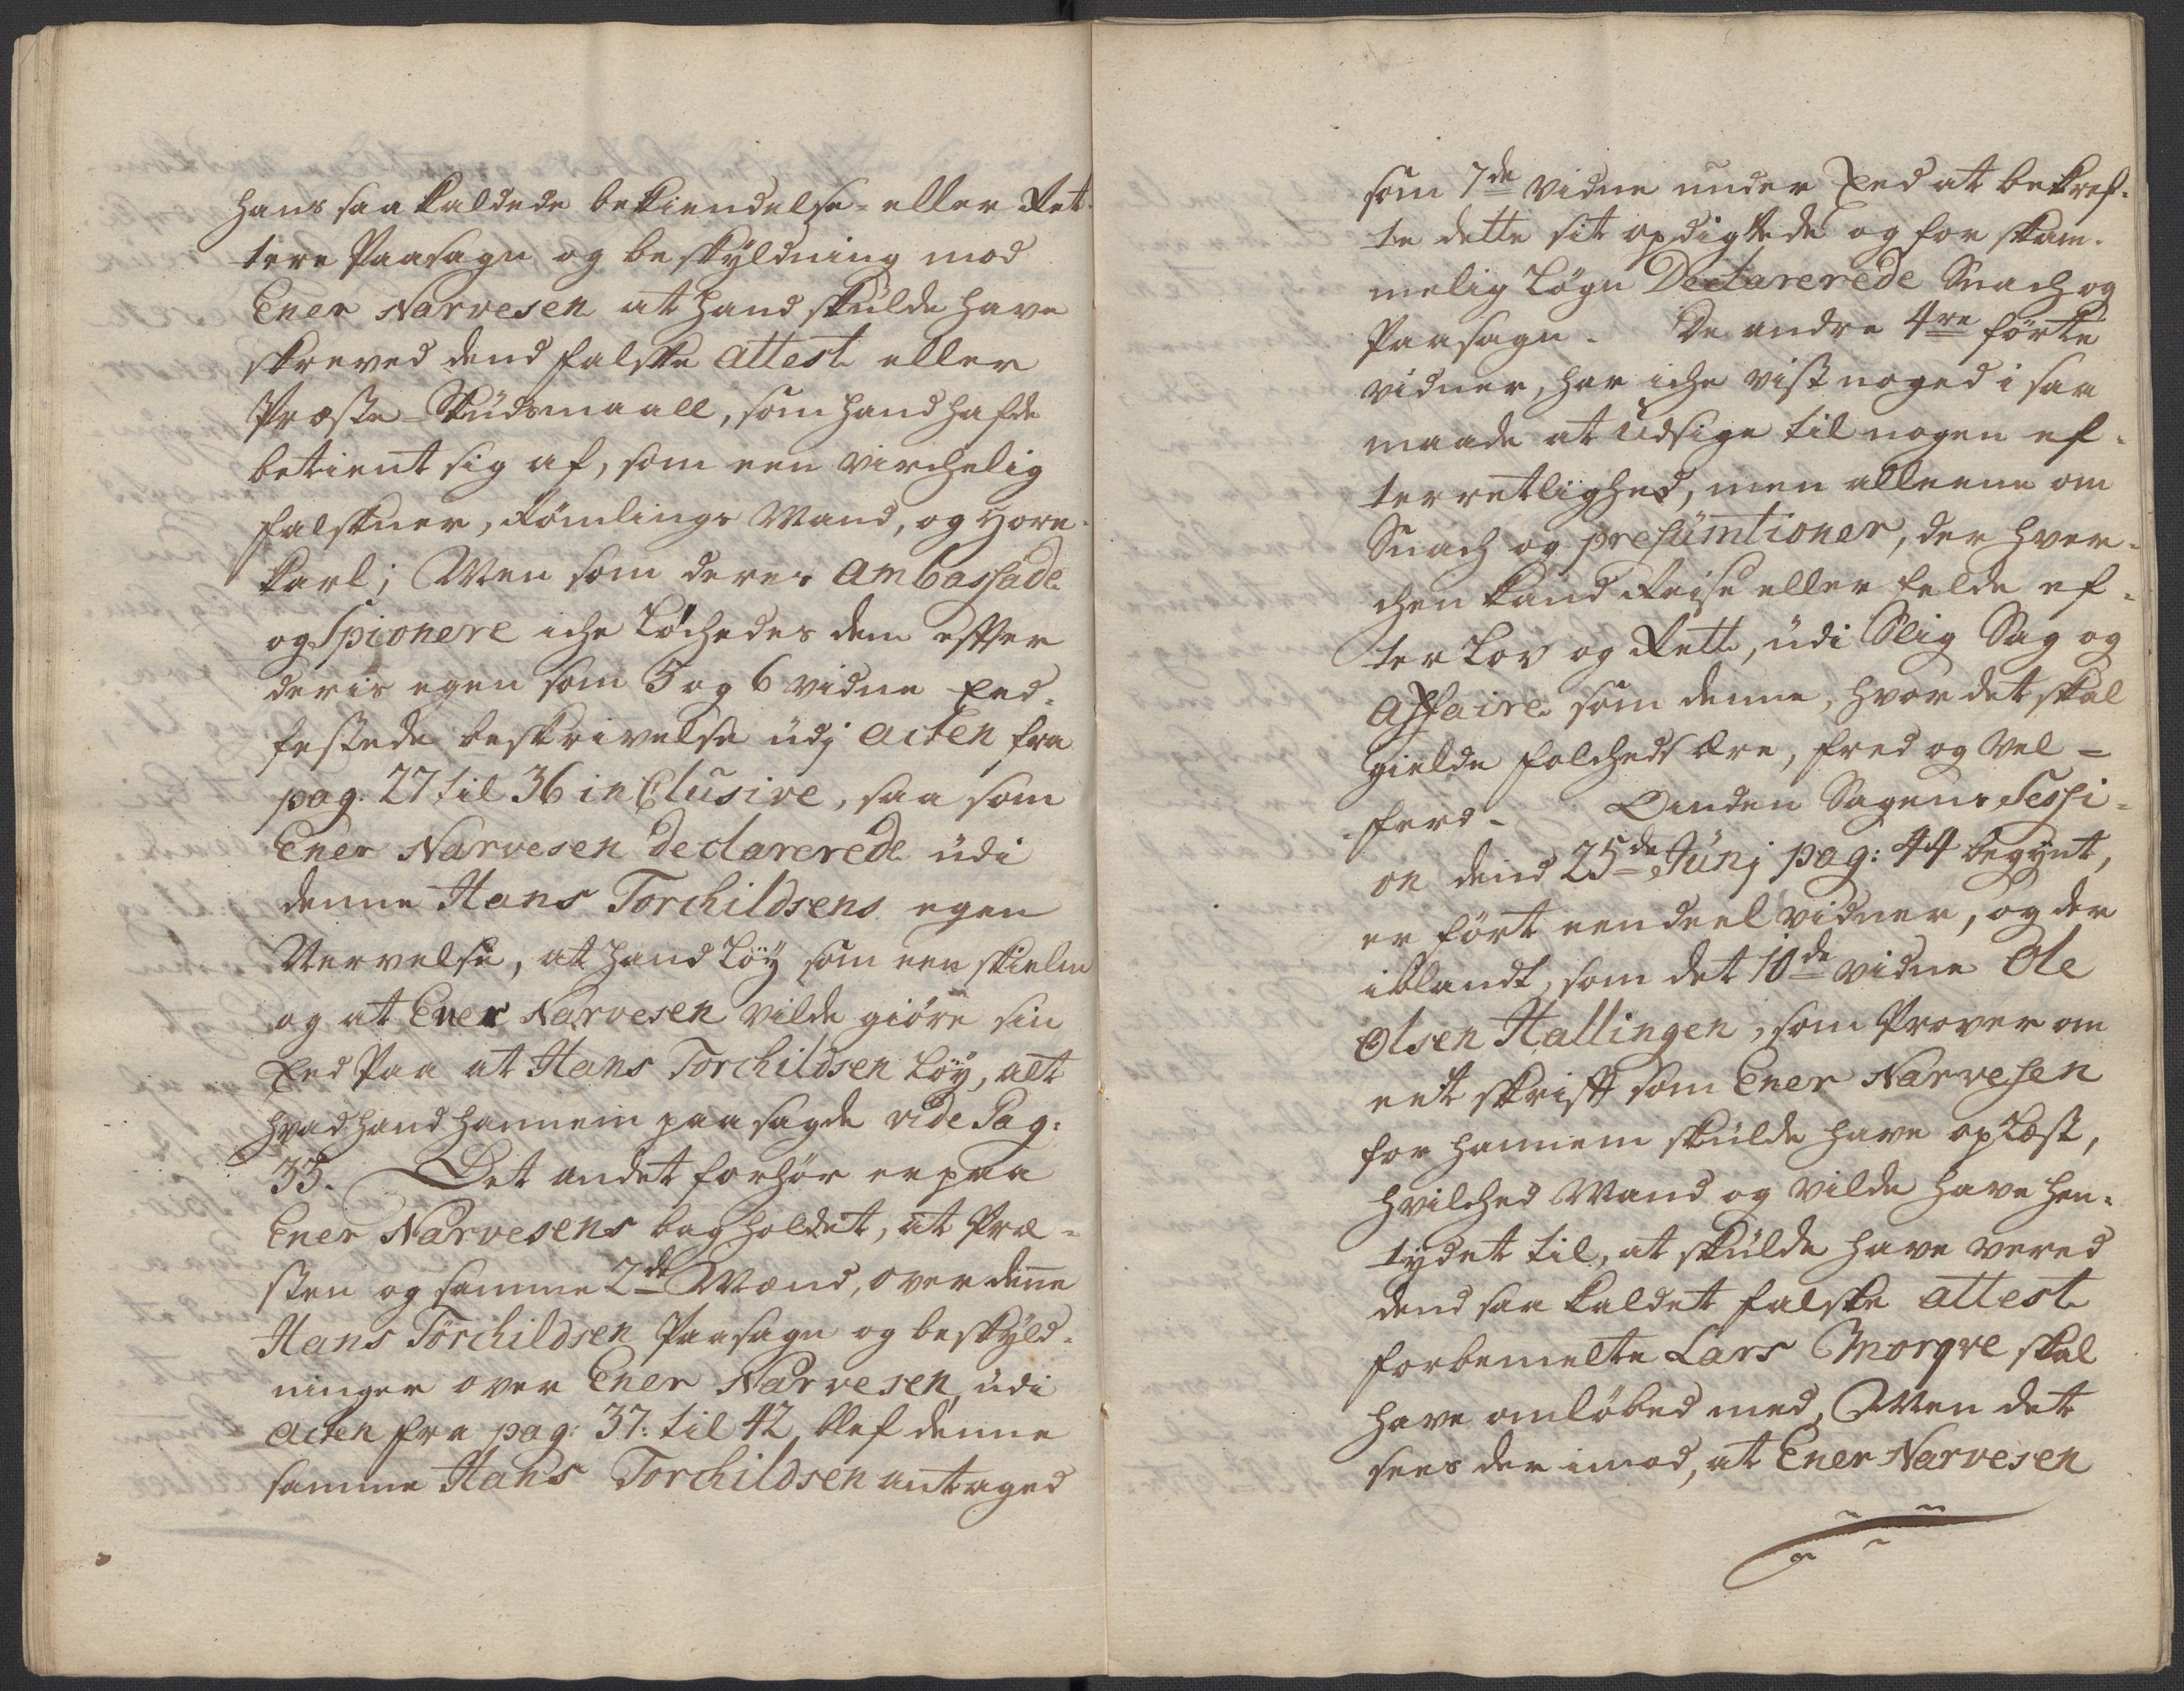 hans saa kaldede bekiendelse- eller Ret-
tere Paasagn og beskyldning mod
Ener Narvesen at hand skulde have
skreved dend falske attest eller
Præste-Skudsmaall, som hand hafde
betient sig af, som een virchelig
falskner, Römlings Mand, og Hore-
karl; Men som deres Ambassade
og Spionere iche Löchedes dem efter
deris egen som 5 og 6 vidne Eed-
festede beskrivelse udj acten fra
pag. 27 til 36 inclusive, saa som
Ener Narvesen declarerede udi
denne Hans Torchildsens egen
Nervelse, at hand Löy som een skielm
og at Ener Narvesen vilde giöre sin
Eed Paa at Hans Torchildsen Löy, alt
hvad hand hannem paasagde vide Pag:
35. Det andet forhör er paa
Ener Narvesens bag holdet, at Præ-
sten og samme 2de Mænd, over denne
Hans Torchildsen Paasagn og beskyld-
ninger over Ener Narvesen, udi
acten fra pag: 37: til 42, blef denne
samme Hans Torchildsen antaged
som 7de vidne under Eed at bekref-
te dette sit opdigtede og for skam-
melig Lögn Declarerede Snach og
Paasagn. De andre 4re förte
vidner, har iche vist noged i saa
maade at udsige til nogen ef-
terretlighed, men alleene om
Snach og presumtioner, der hver-
chen kand Reise eller felde ef-
ter Lov og Rett, udi Slig Sag og
Affaire som denne, hvor det skal
gielde folcheds Ære, fred og Vel-
ferd. Anden Sagens Sessi-
on dend 25de Junj pag: 44 begynt,
er fört een deel vidner, og der
iblandt, som det 10de vidne Ole
Olsen Hallingen, som Prover om
eet skrift som Ener Narvesen
for hannem skulde have oplæst,
hvilched Mand og vilde have hen-
tydet til, at skulde have vered
dend saa kaldet falske attest
forbemelte Lars Morqve skal
have omlöbed med, Men det
sees der imod, at Ener Narvesen